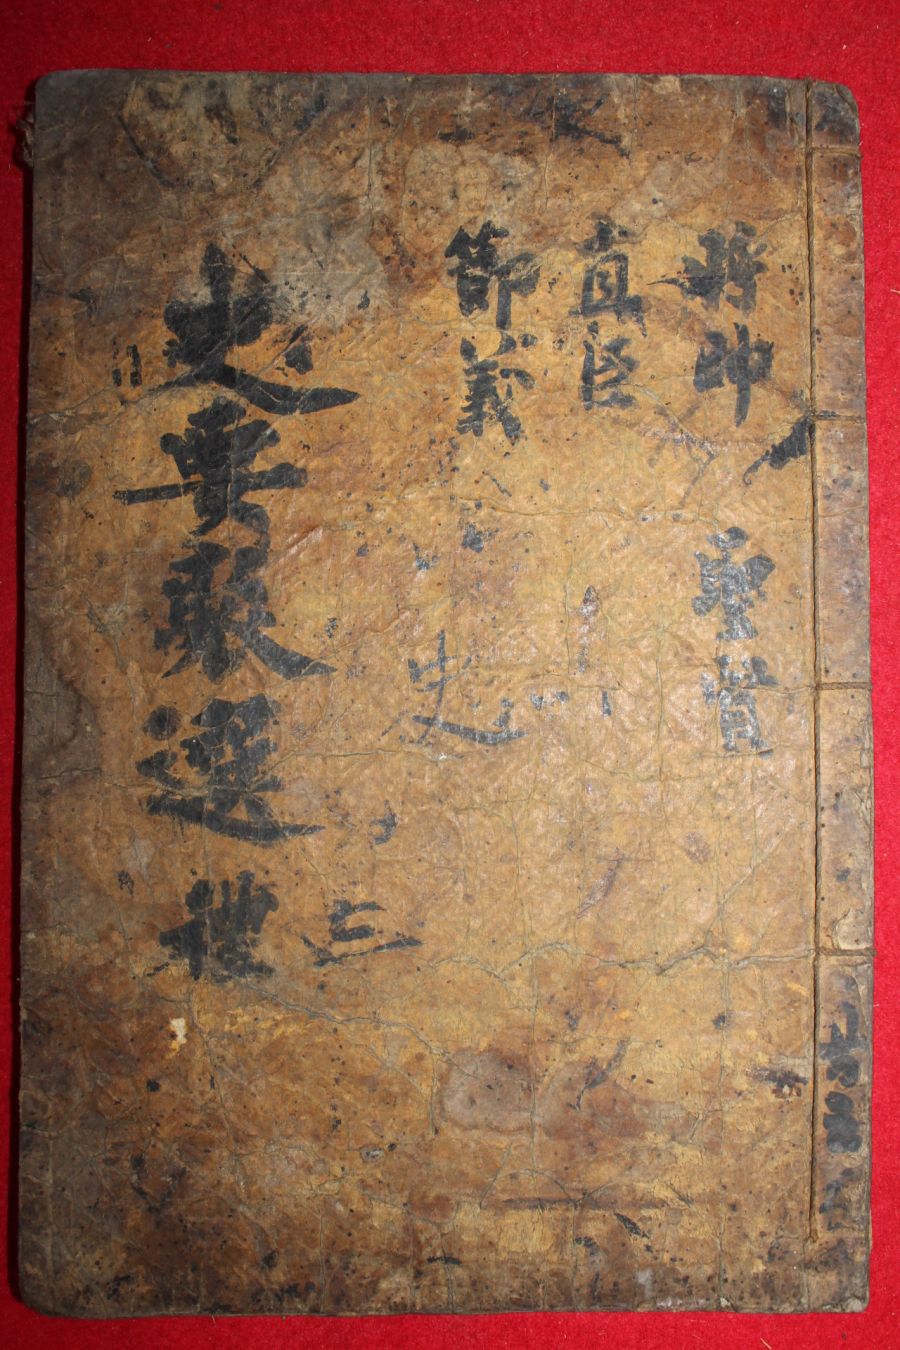 將帥 聖賢
直臣
節義
史
三
史要聚選